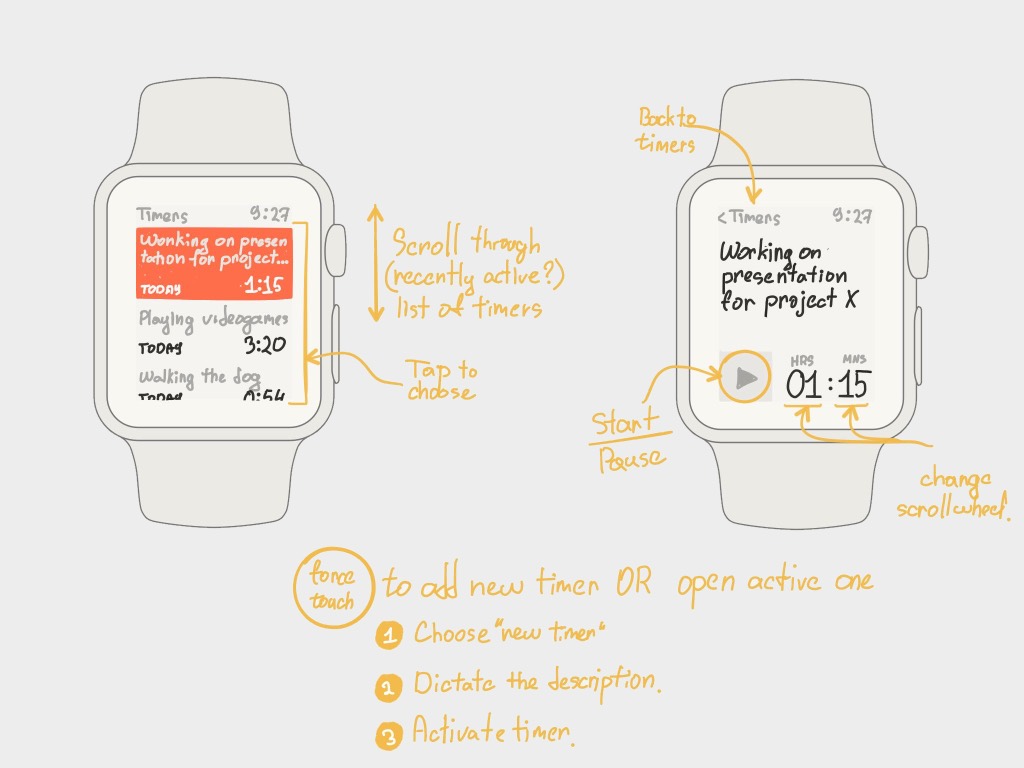 Timers 9:27
Working on presen
tation for project...
TODAY 1:15
Playing videogames
TODAY 3:20
Walking the dog
TODAY 0:54
Scroll through
(recently active?)
list of timers
Tap to
choose
Back to
timers
< Timers 9:27
Working on
presentation
for project X
HRS MNS
01:15
Start
Pause
change
scrollwheel.
force
touch
to add new timer OR open active one
1 Choose "new timer"
2 Dictate the description.
3 Activate timer.